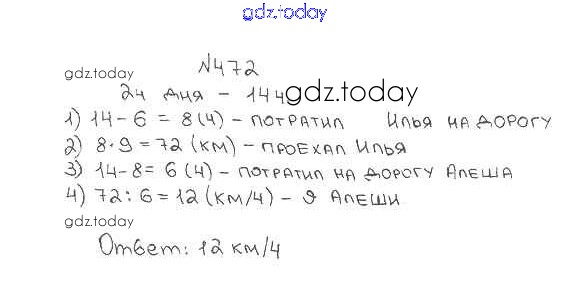 gdz.today
№472
gdz.today
2ч дня - 14ч gdz.today
1) 14-6 = 8 (ч) - потратил Илья на дорогу
2) 8·9=72 (км) - проехал Илья
3) 14-8= 6 (ч) - потратил на дорогу Алеша
4) 72:6=12 (км/ч) - υ Алеши
gdz.today
Ответ: 12 км/ч